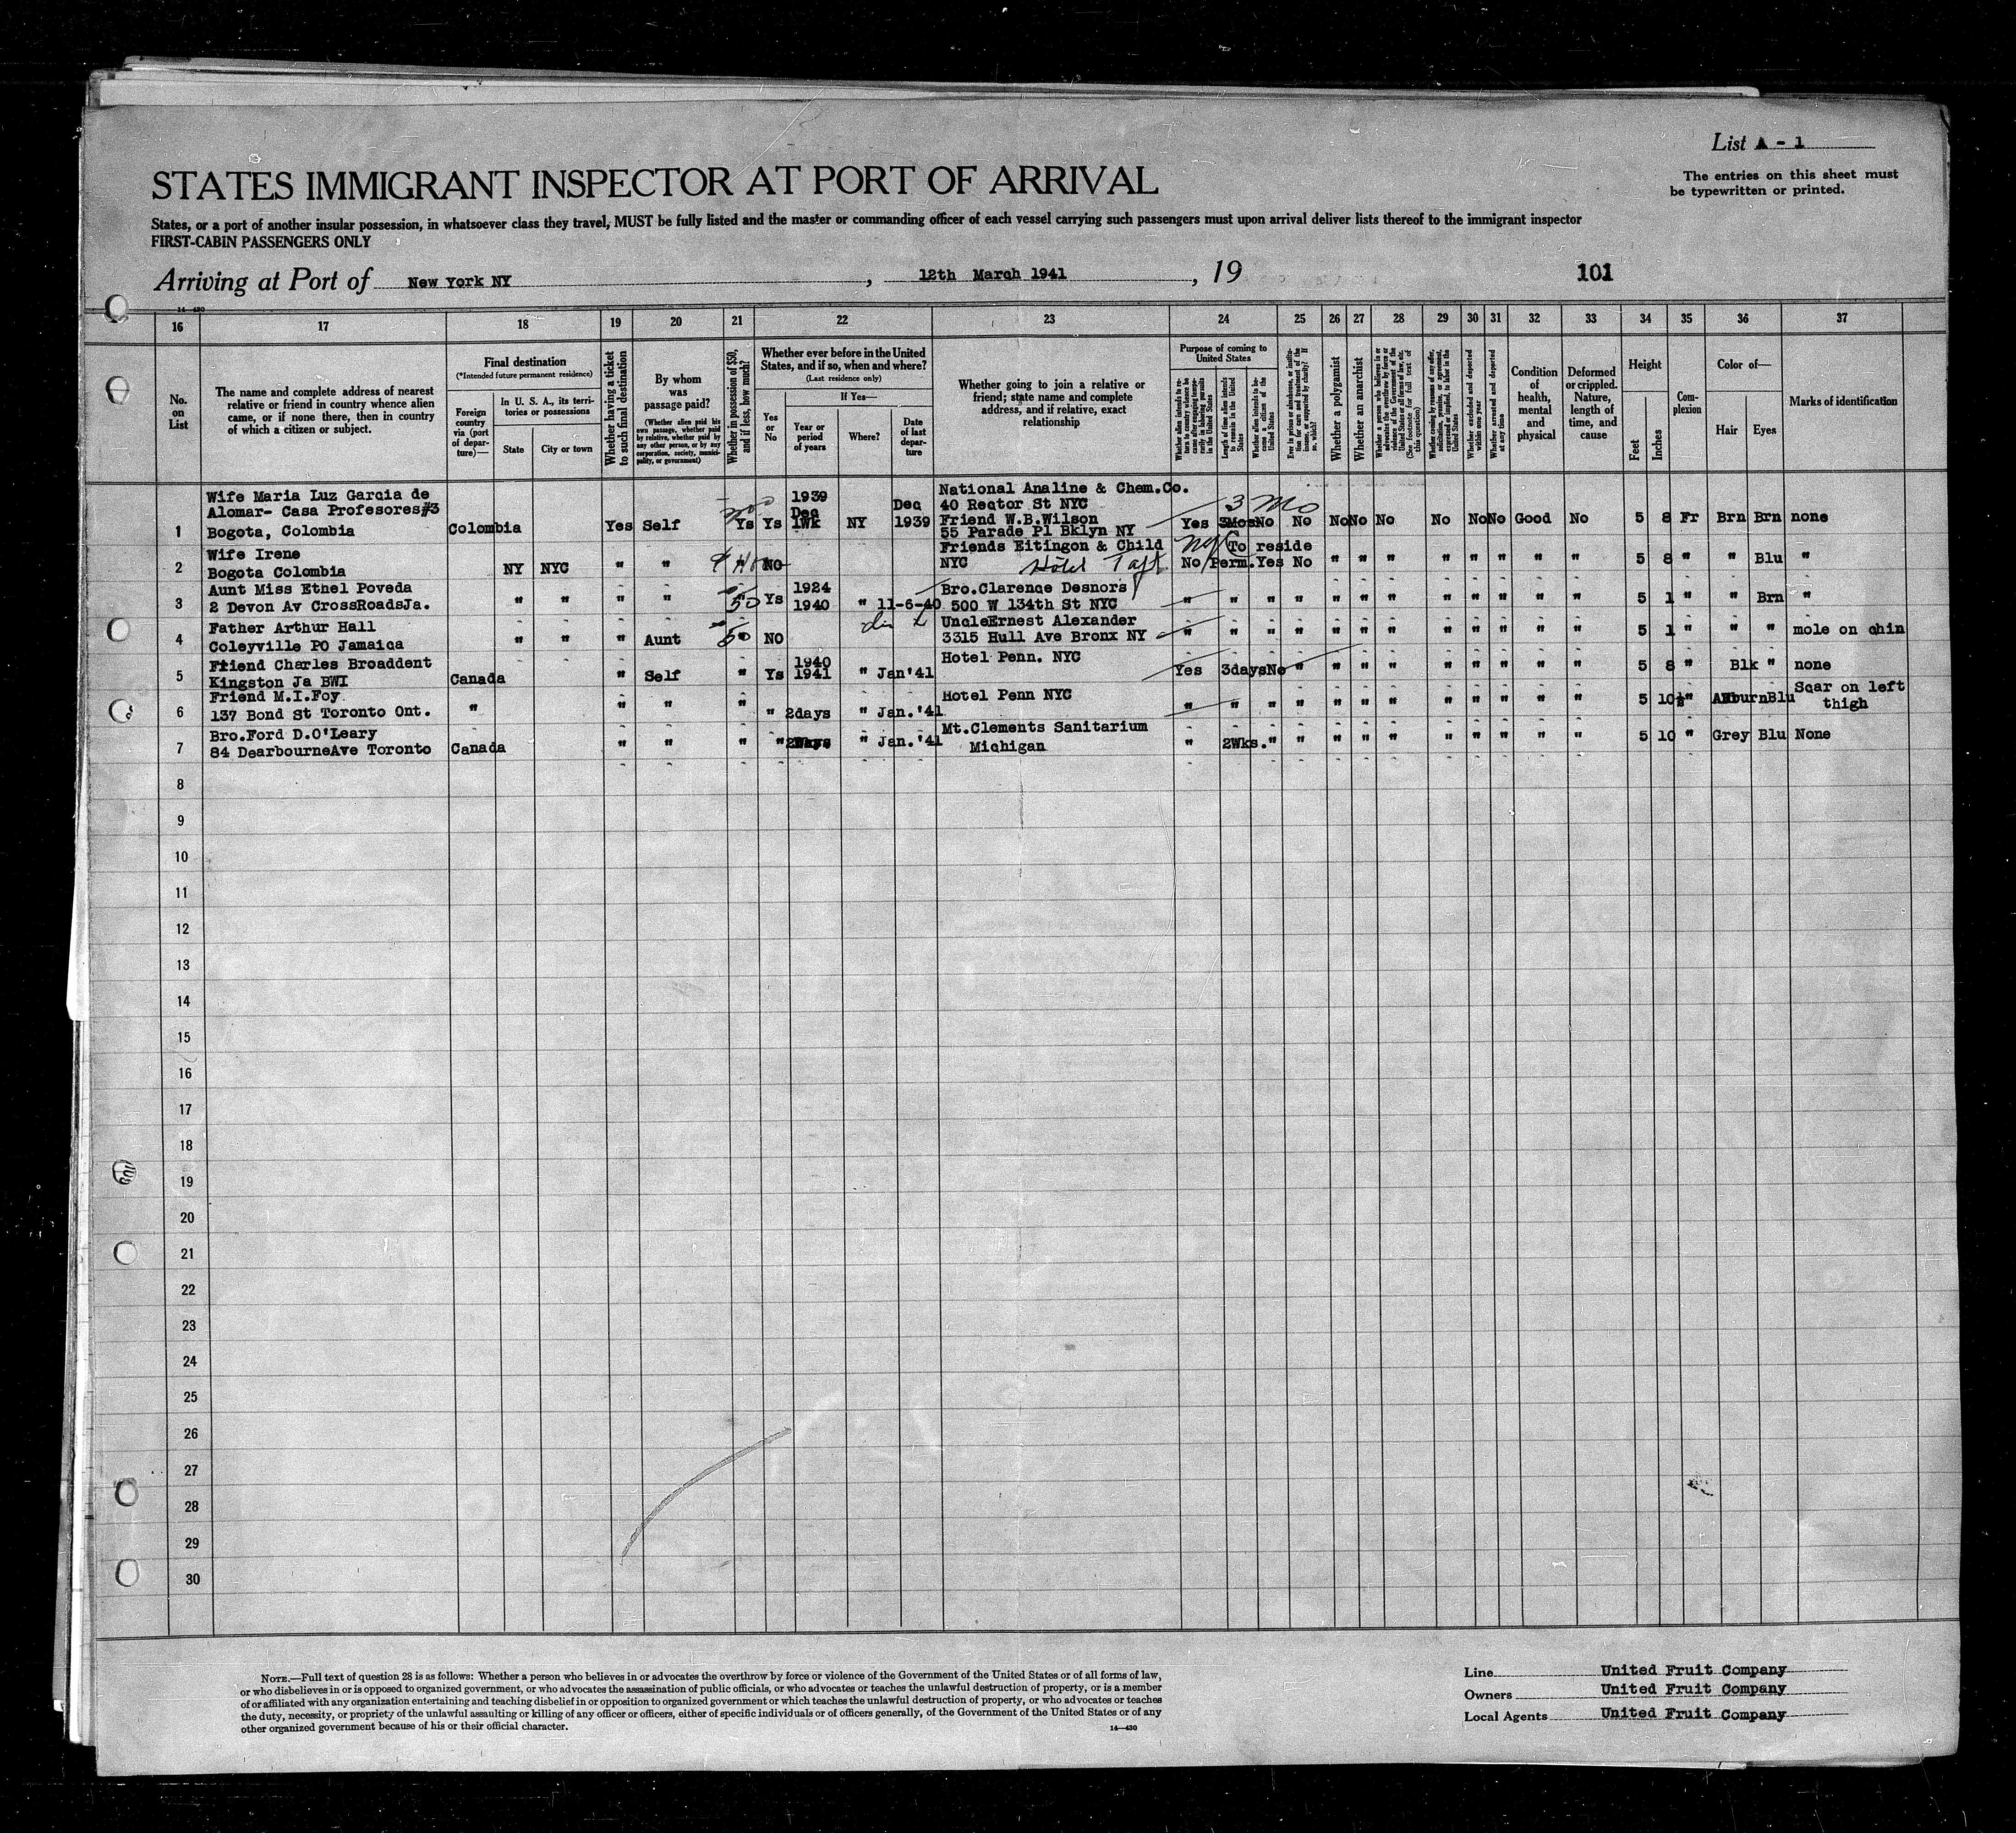 List A - 1
STATES IMMIGRANT INSPECTOR AT PORT OF ARRIVAL
The entries on this sheet must
be typewritten or printed.
States, or a port of another insular possession, in whatsoever class they travel, MUST be fully listed and the master or commanding officer of each vessel carrying such passengers must upon arrival deliver lists thereof to the immigrant inspector
FIRST-CABIN PASSENGERS ONLY
Arriving at Port of New York NY, 12th March 1941, 19 101
14-430
16 17 18 19 20 21 22 23 24 25 26 27 28 29 30 31 32 33 34 35 36 37
No. on List
The name and complete address of nearest
relative or friend in country whence alien
came, or if none there, then in country
of which a citizen or subject.
Final destination
(*Intended future permanent residence)
Foreign country via (port of departure)—
In U. S. A., its territories or possessions
State
City or town
Whether having a ticket to such final destination
By whom was passage paid?
(Whether alien paid his own passage, whether paid by relative, whether paid by any other person, or by any corporation, society, municipality, or government)
Whether in possession of $50, and if less, how much?
Whether ever before in the United
States, and if so, when and where?
(Last residence only)
Yes or No
If Yes—
Year or period of years
Where?
Date of last departure
Whether going to join a relative or
friend; state name and complete
address, and if relative, exact
relationship
Purpose of coming to United States
Whether alien intends to return to country whence he came after engaging temporarily in laboring pursuits in the United States
Length of time alien intends to remain in the United States
Whether alien intends to become a citizen of the United States
Ever in prison or almshouse, or institution for care and treatment of the insane, or supported by charity? If so, which?
Whether a polygamist
Whether an anarchist
Whether excluded and deported within one year
Whether arrested and deported at any time
Condition of health, mental and physical
Deformed or crippled. Nature, length of time, and cause
Height
Feet
Inches
Complexion
Color of—
Hair
Eyes
Marks of identification
Wife Maria Luz Garcia de 1939 National Analine & Chem.Co.
Alomar- Casa Profesores#3 Dec Dec 40 Rector St NYC 3 Mo
1 Bogota, Colombia Colombia Yes Self Ys Ys 1Wk NY 1939 Friend W.B.Wilson Yes 3Mos No No No No No No No No Good No 5 8 Fr Brn Brn none
55 Parade Pl Bklyn NY
Wife Irene Friends Eitingon & Child To reside
2 Bogota Colombia NY NYC " " NO NYC Hotel Taft No Perm. Yes No " " " " " " " " 5 8 " " Blu "
Aunt Miss Ethel Poveda 1924 Bro.Clarence Desnors
3 2 Devon Av CrossRoadsJa. " " " " 50 Ys 1940 " 11-6-40 500 W 134th St NYC " " " " " " " " " " " " 5 1 " " Brn "
Father Arthur Hall UncleErnest Alexander
4 Coleyville PO Jamaica " " " Aunt 50 NO 3315 Hull Ave Bronx NY " " " " " " " " " " " " 5 1 " " " mole on chin
Friend Charles Broaddent 1940 Hotel Penn. NYC
5 Kingston Ja BWI Canada " Self " Ys 1941 " Jan'41 Yes 3days No " " " " " " " " " 5 8 " Blk " none
Friend M.I.Foy Hotel Penn NYC Scar on left
6 137 Bond St Toronto Ont. " " " " " 2days " Jan.'41 " " " " " " " " " " " " 5 10½ " Auburn Blu thigh
Bro.Ford D.O'Leary Mt.Clements Sanitarium
7 84 DearbourneAve Toronto Canada " " " " " Jan.'41 Michigan " 2Wks. " " " " " " " " " " 5 10 " Grey Blu None
8
9
10
11
12
13
14
15
16
17
18
19
20
21
22
23
24
25
26
27
28
29
30
NOTE.—Full text of question 28 is as follows: Whether a person who believes in or advocates the overthrow by force or violence of the Government of the United States or of all forms of law,
or who disbelieves in or is opposed to organized government, or who advocates the assassination of public officials, or who advocates or teaches the unlawful destruction of property, or is a member
of or affiliated with any organization entertaining and teaching disbelief in or opposition to organized government or which teaches the unlawful destruction of property, or who advocates or teaches
the duty, necessity, or propriety of the unlawful assaulting or killing of any officer or officers, either of specific individuals or of officers generally, of the Government of the United States or of any
other organized government because of his or their official character.
14—430
Line United Fruit Company
Owners United Fruit Company
Local Agents United Fruit Company